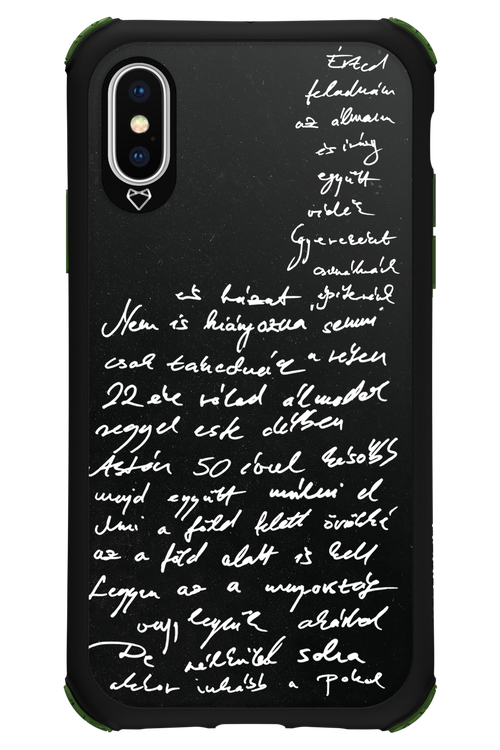 Érted
feladnám
az álmam
és irány
együtt
vidék
Gyerekeket
csinálnánk
és házat építenénk
Nem is hiányozna semmi
csak takednánk a réten
22 éve rólad álmodok
reggel este délben
Aztán 50 évvel később
majd együtt múlni el
Ami a föld felett örökké
az a föld alatt is kell
Legyen az a mennyország
vagy legyünk akárhol
De nélküled soha
akkor inkább a pokol